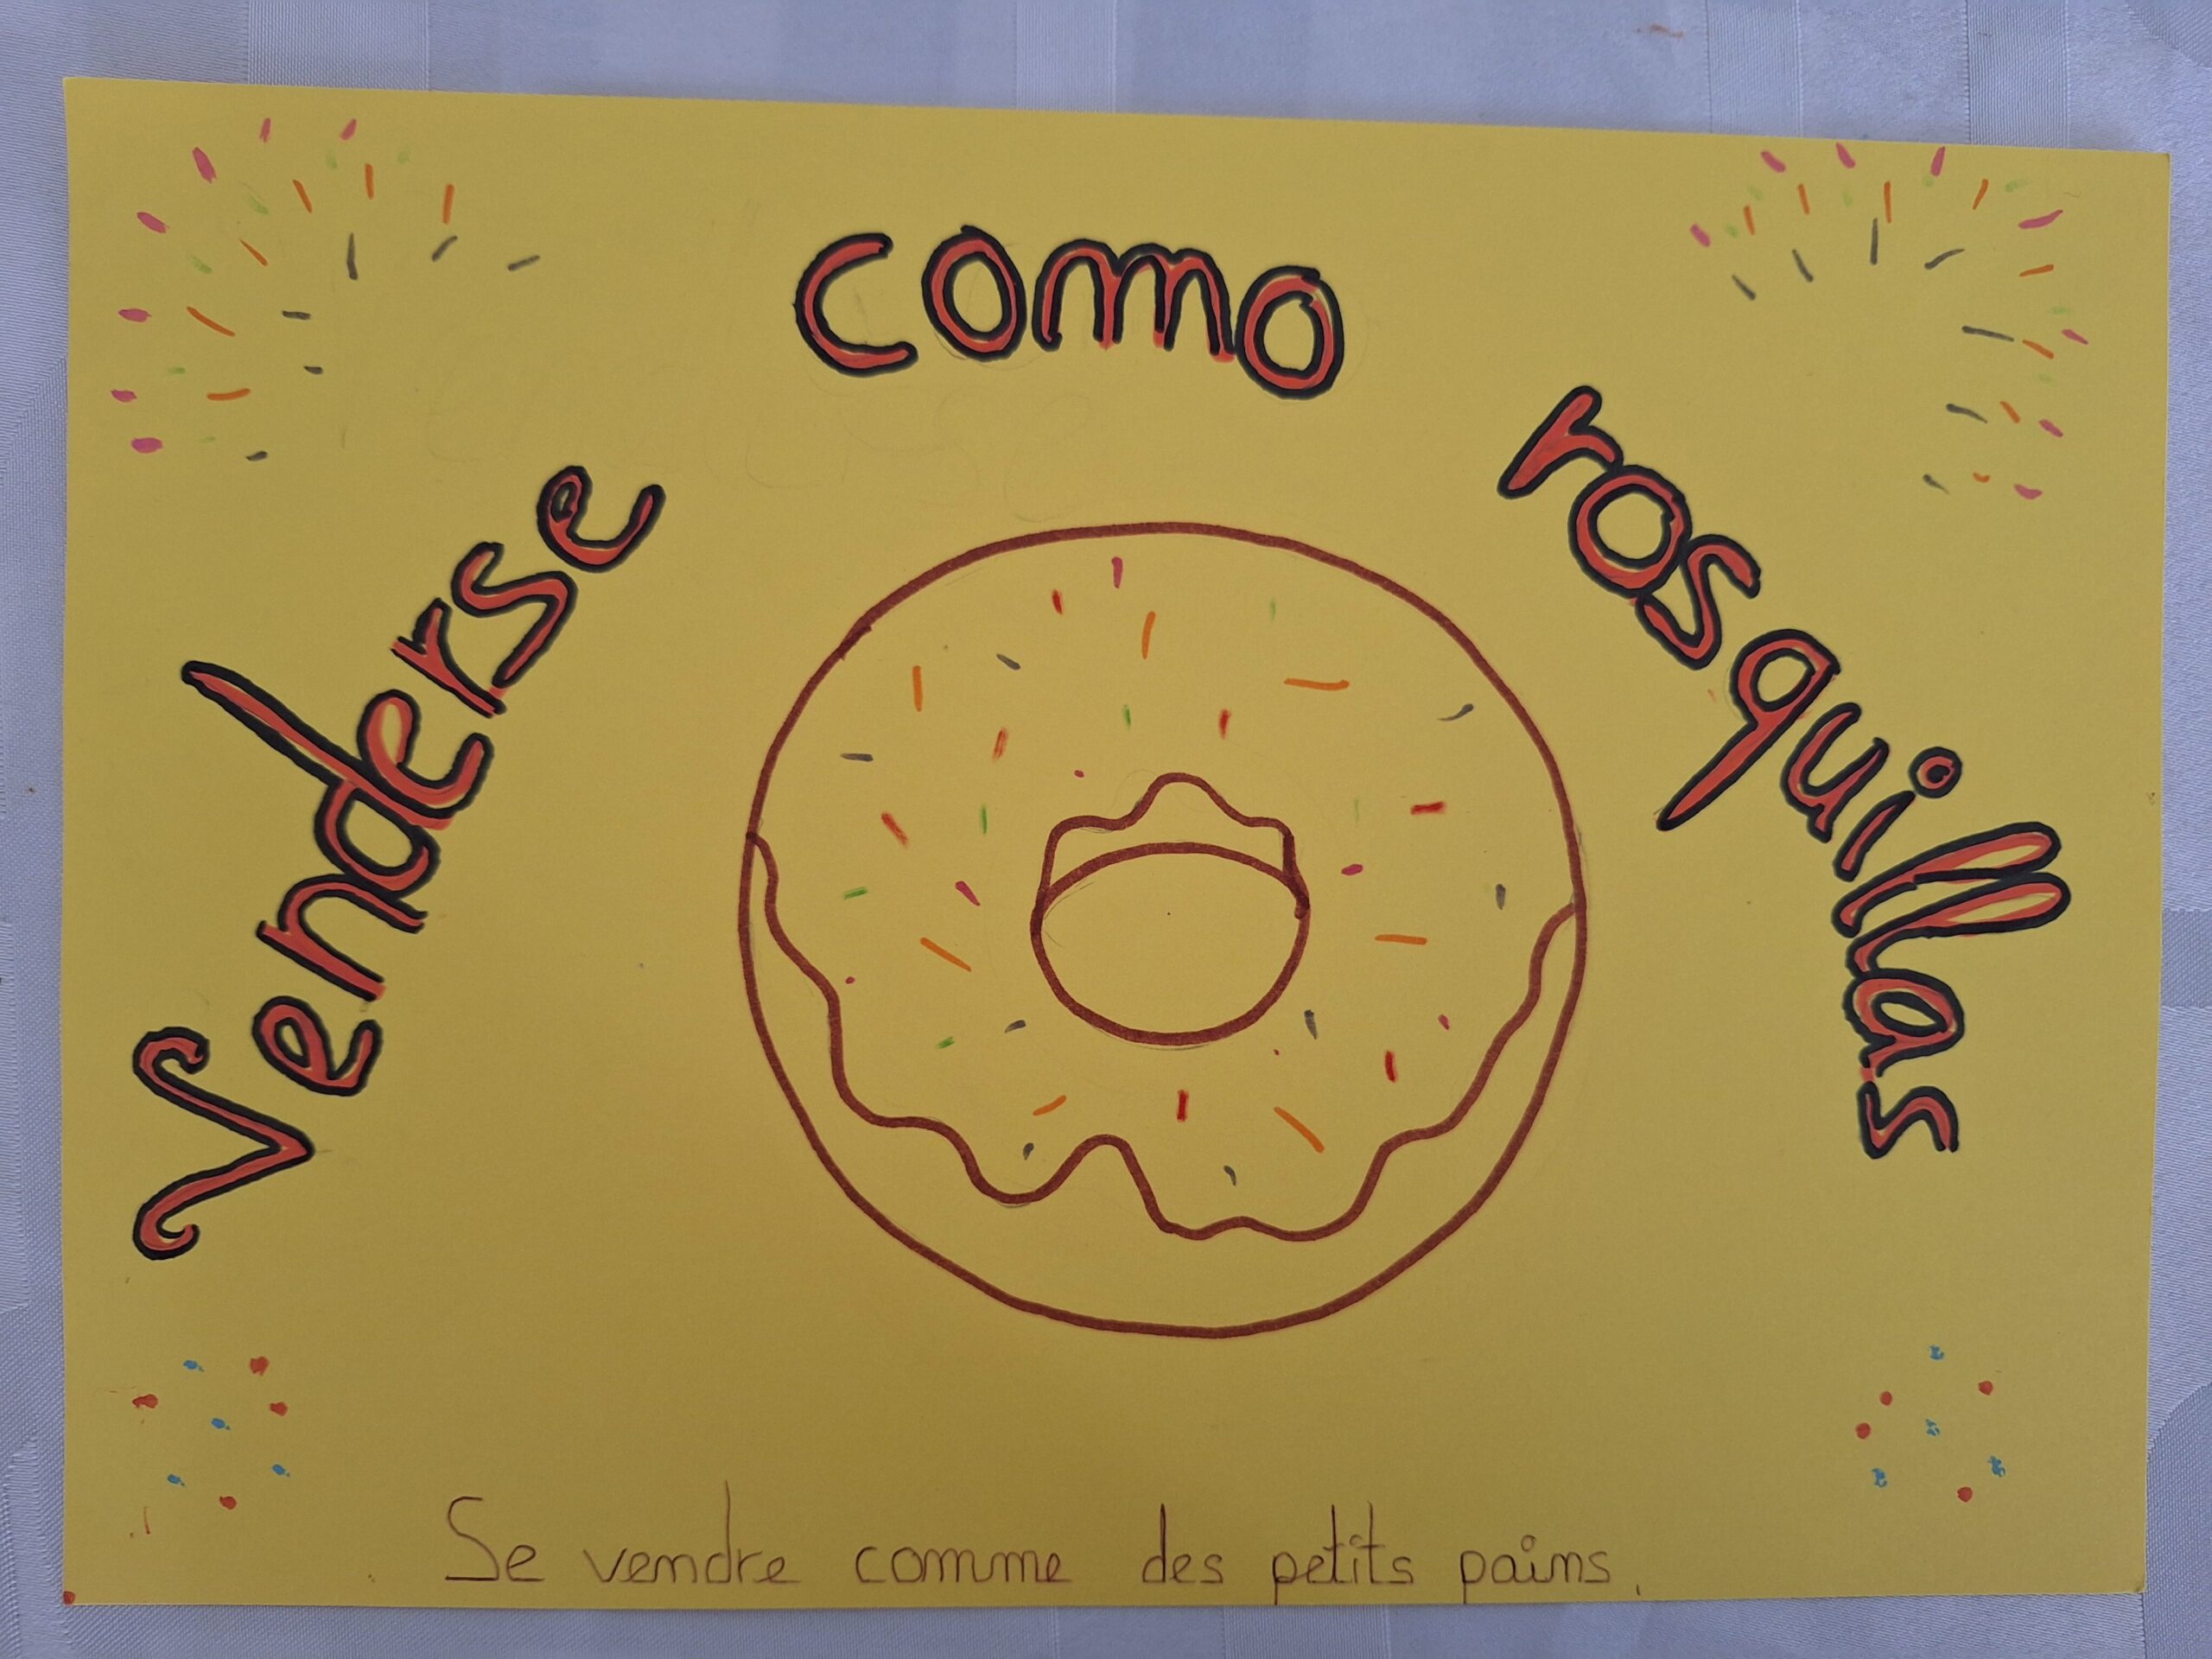 Venderse como rosquillas
Se vendre comme des petits pains.